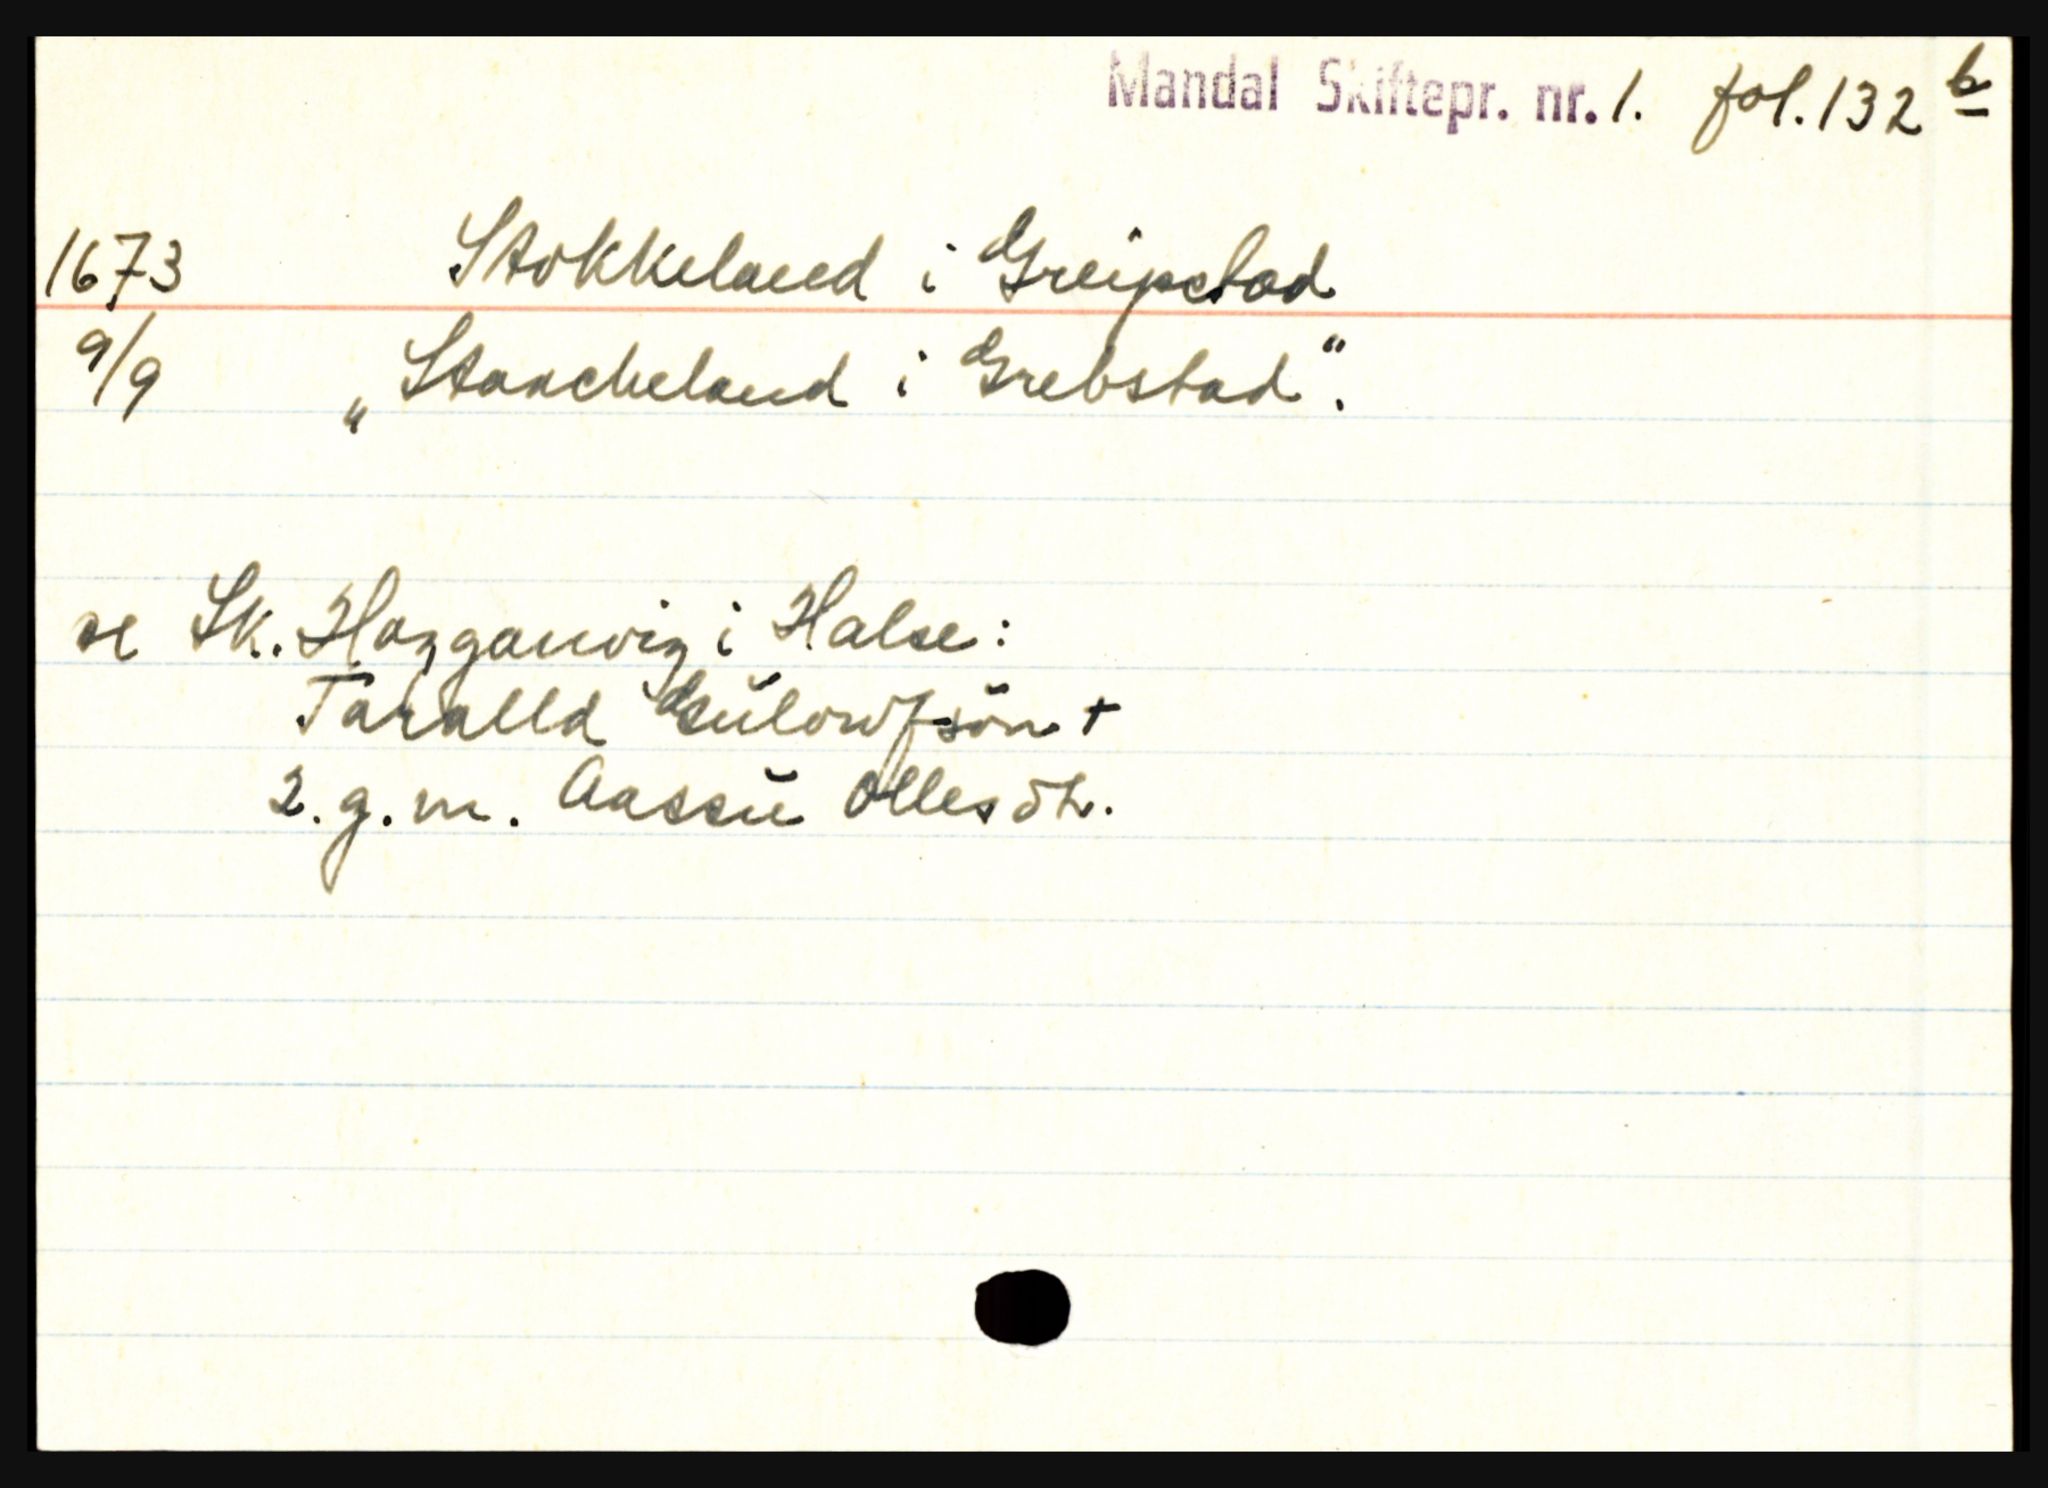 Mandal Skiftepr. nr. 1. fol. 132 b
1673 Stokkeland i Greipstad
9/9 „Staackeland i Grebstad".
se Sk. Hazganvig i Halse:
Taralld Gulowfsön +
2. g. m. Aassu Ollesdtr.